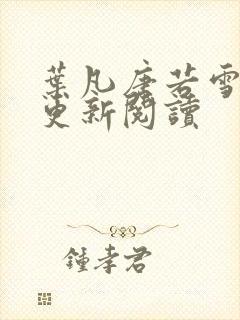 葉凡唐若雪
更新閱讀
鍾孝君